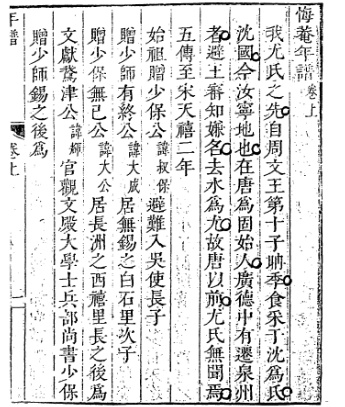 悔菴年譜卷上
我尤氏之先自周文王第十子聃季食采于沈爲氏
沈國今汝寧地也在唐爲固始人廣德中有遷泉州
者避王審知嫌名去水爲尤故唐以前尤氏無聞焉
五傳至宋天禧二年
始祖贈少保公諱叔保避難入吳使長子
贈少師有終公諱大成居無錫之白石里次子
贈少保無己公諱大公居長洲之西禧里長之後爲
文獻鶩津公諱輝官觀文殿大學士兵部尚書少保
贈少師錫之後爲
年譜
卷上
一